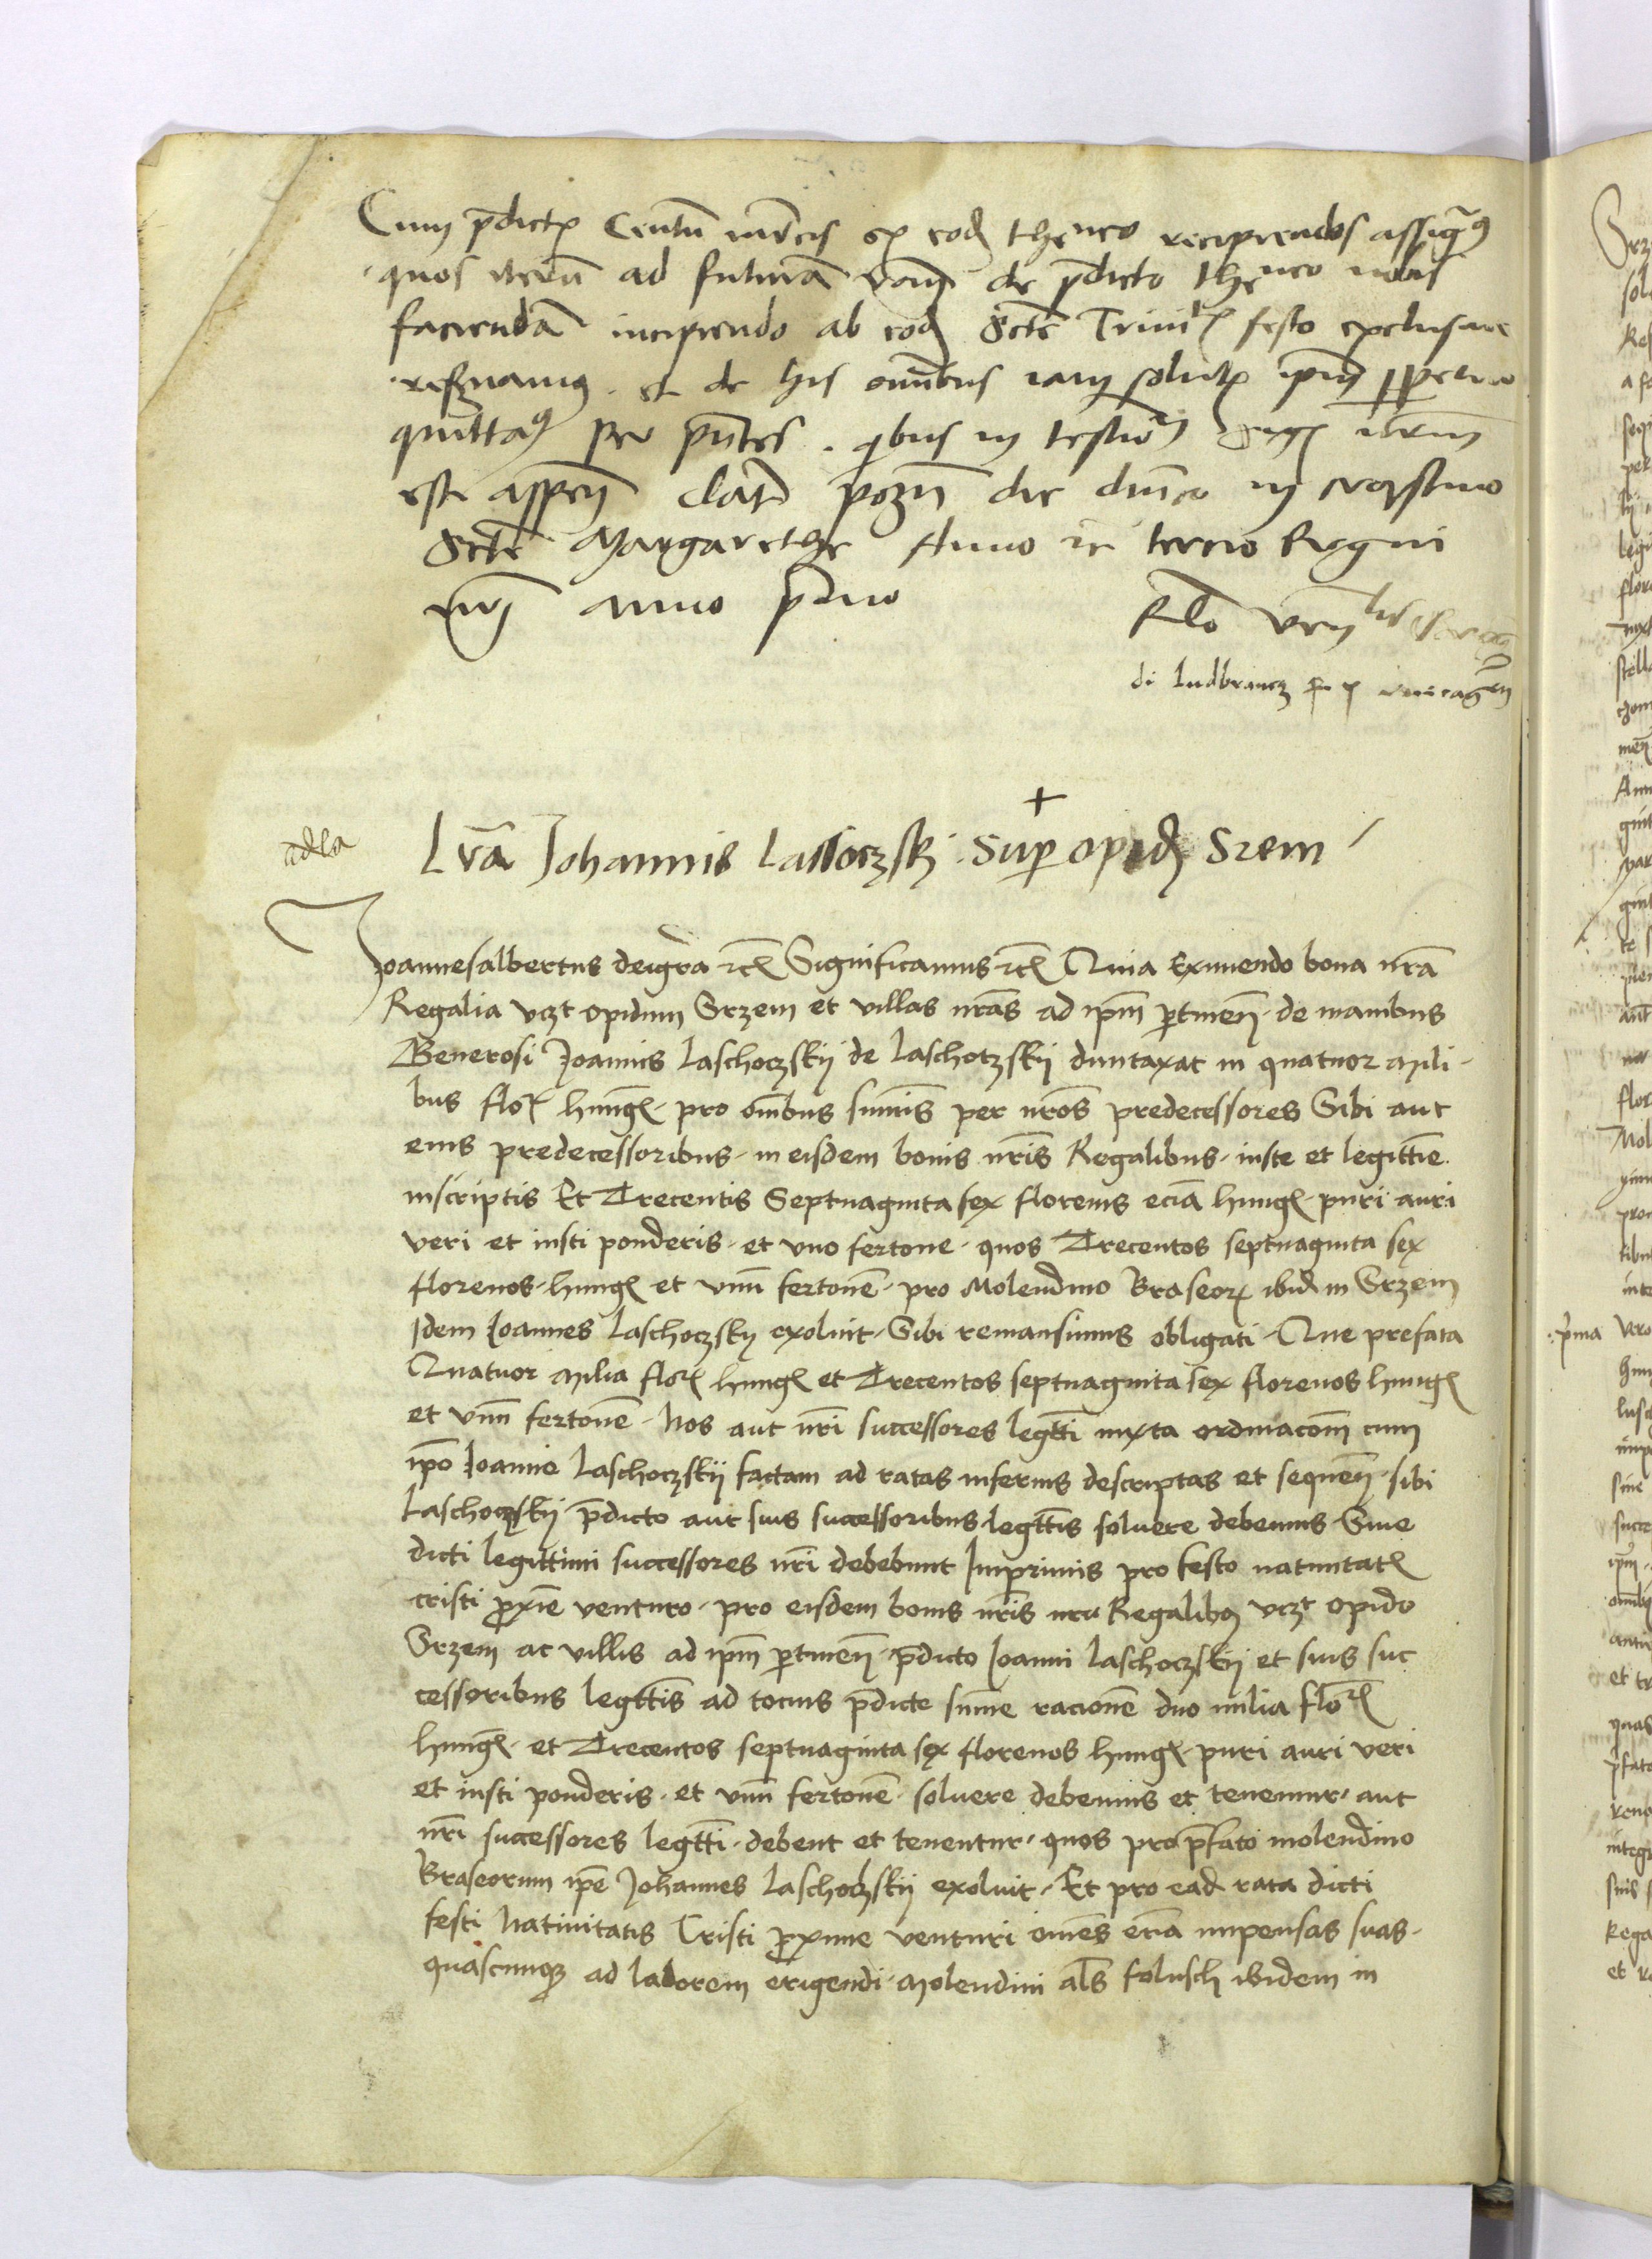 Cum p̄dictis Centū mrcis ex eod theneo recipiendos assigm9
quos iterū ad futurā rōnē de p̄dicto theneo nobis
faciendā incipiendo ab eod Scte Trinitis festo exclusiue
reseruamus et de his om̄ibus iam solutis ip̄m perpetuo
quittam9 per p̄ntes. quibus in testiōm Sigl nrm̄
est appen̄ Dat pozn̄ die dn̄ico in crastino
Scte Margarethe Anno ꝛc tercio Regni
nrj anno primo
Rlo
di ludbrancz
adla
Lrā Johannis Lassoczskj Sup opid Srem
Joannes albertus dei gra ꝛc Significamus ꝛc Quia Eximendo bona nrā
Regalia vczt opidum Srzem et villas nrās ad ip̄m ꝑtinen̄ de manibus
Generosi Joannis Laschoczskij de Laschotzskij duntaxat in quatuor Mili
bus flor hungl pro om̄ibus sum̄is per nrōs predecessores Sibi aut
eius predecessoribus in eisdem bonis nrīs Regalibus iuste et legittīe
inscriptis Et Trecentis Septuaginta sex florenis eciā hungl puri auri
veri et iusti ponderis et vno fertone quos Trecentos septuaginta sex
florenos hungl et vnū fertonē pro Molendino Braseor ibid in Srzem
Idem Joannes Laschoczsky exoluit Sibi remansimus obligati Que prefata
Quatuor Milia flor hungl et Trecentos septuaginta sex florenos hungl
et vnū fertonē Nos aut nrī successores legttī iuxta ordinacōm cum
ip̄o Joanne Laschoczskij factam ad ratas inferius descriptas et sequen̄ sibi
Laschoczskij p̄dicto aut suis successoribus legttīs soluere debemus Siue
dicti legittimi successores nrī debebunt Imprimis pro festo natiuitatis
cristi ꝓxīe venturo pro eisdem bonis nrīs Regalib9 vczt opido
Srzem ac villis ad ip̄m ꝑtinen̄ p̄dicto Joanni Laschoczskij et suis suc
cessoribus legttīs ad tocius p̄dicte sum̄e racionē duo milia flor
hungl et Trecentos septuaginta sex florenos hungl puri auri veri
et iusti ponderis et vnū fertonē soluere debemus et tenemur aut
nrī successores legttī debent et tenentur quos pro p̄fato molendino
Braseorum ip̄e Johannes Laschoczskij exoluit Et pro ead rata dicti
festi Natiuitatis Cristi ꝓxime venturi om̄es eciā impensas suas
quascunqꝫ ad laborem erigendi Molendini als̄ folusch ibidem in